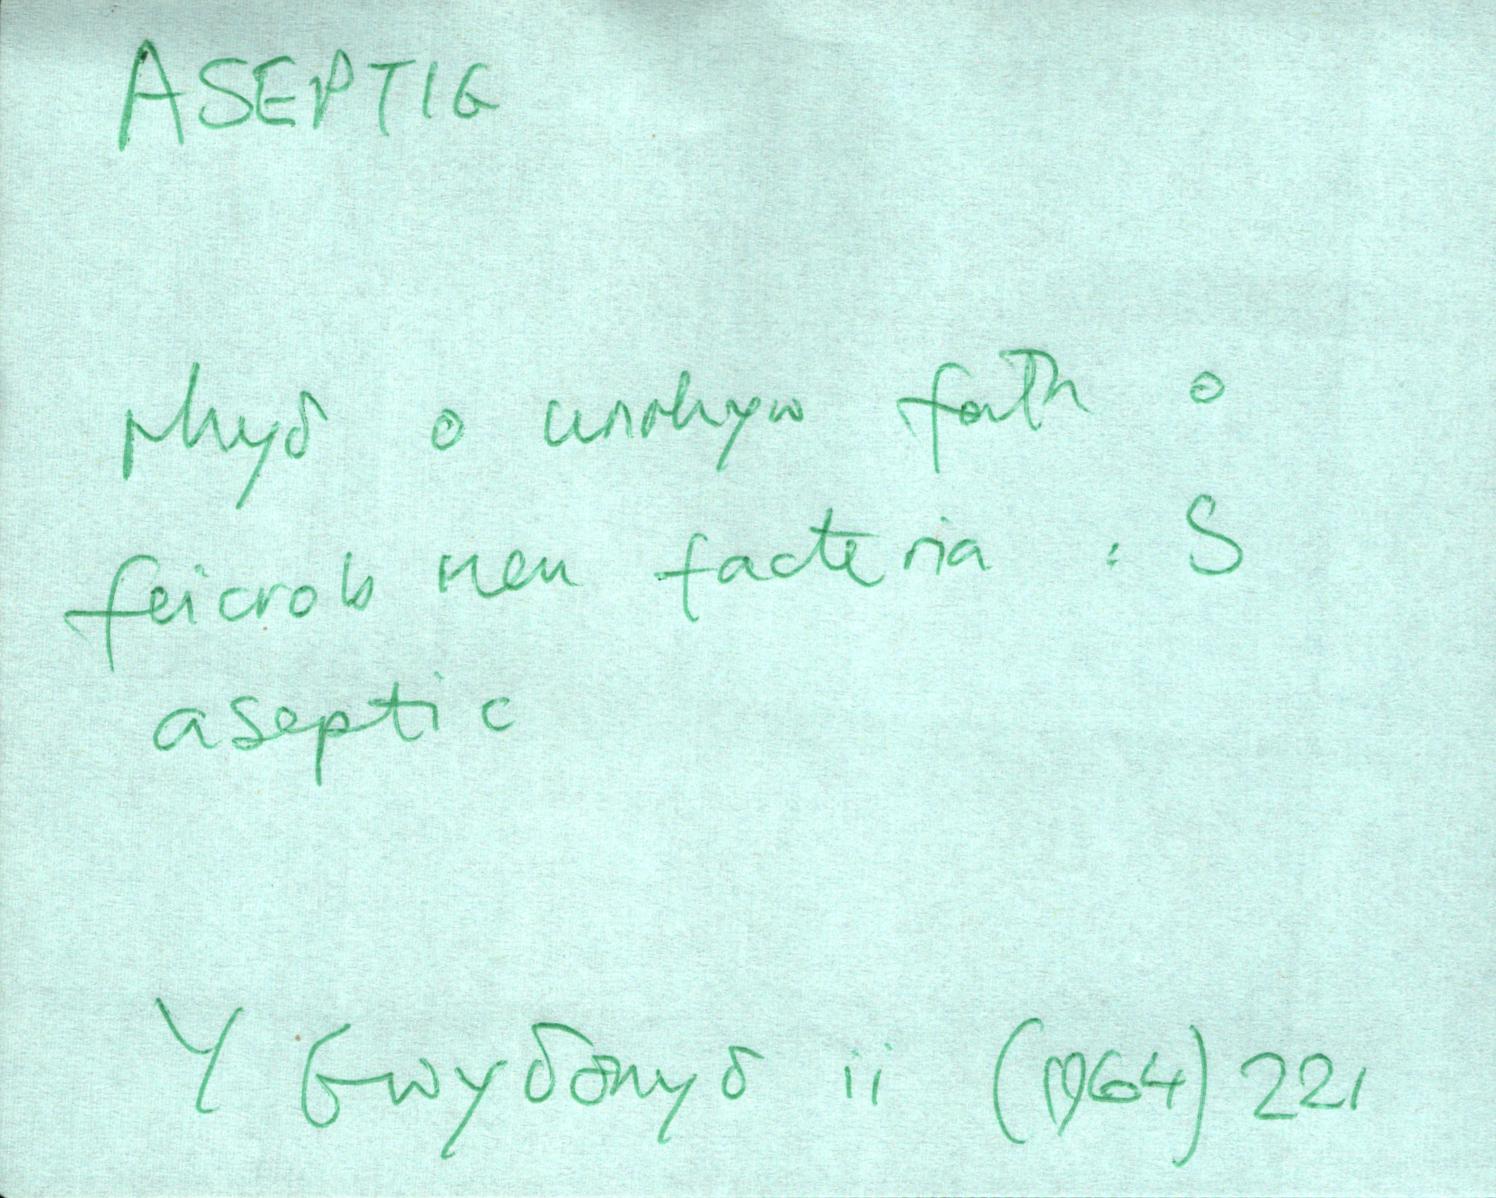 ASEPTIG
rhyδ o unrhyw fath o
feicrob neu facteria : S
aseptic
Y Gwyδonyδ ii (1964) 221